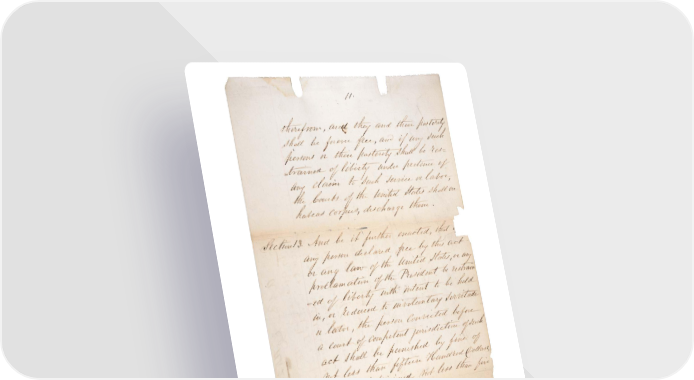 11.
therefrom, and they and their posterity
shall be forever free, and if any such
persons or their posterity shall be res-
trained of liberty under pretense of
any claim to such service or labor,
the Courts of the United States shall on
habeas corpus, discharge them.
Section 13. And be it further enacted, that
any person declared free by this act
or any law of the United States, or any
proclamation of the President be restrain
ed of liberty with intent to be held
in, or reduced to involuntary servitude
or labor, the person convicted before
a court of competent jurisdiction of such
act shall be punished by fine of
not less than fifteen Hundred dollars
not less than five